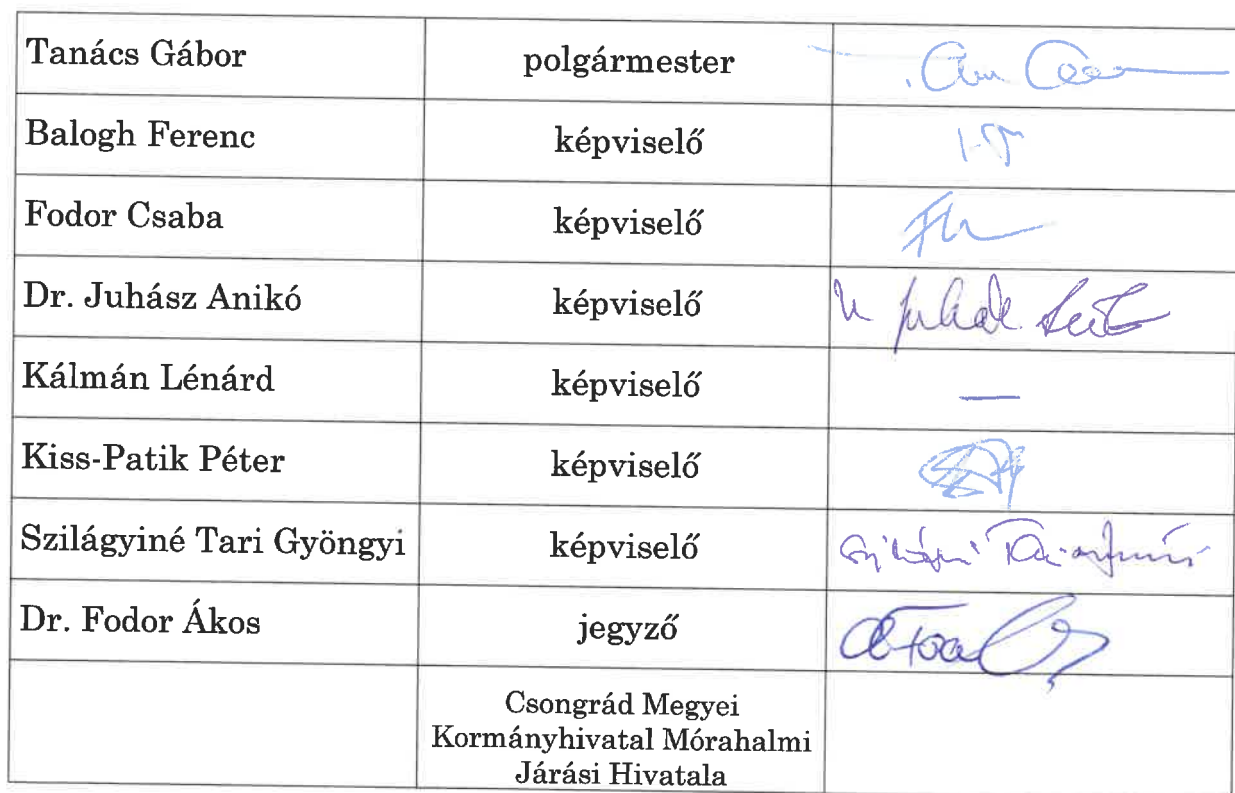 Tanács Gábor polgármester
Balogh Ferenc képviselő
Fodor Csaba képviselő
Dr. Juhász Anikó képviselő
Kálmán Lénárd képviselő —
Kiss-Patik Péter képviselő
Szilágyiné Tari Gyöngyi képviselő
Dr. Fodor Ákos jegyző
Csongrád Megyei
Kormányhivatal Mórahalmi
Járási Hivatala